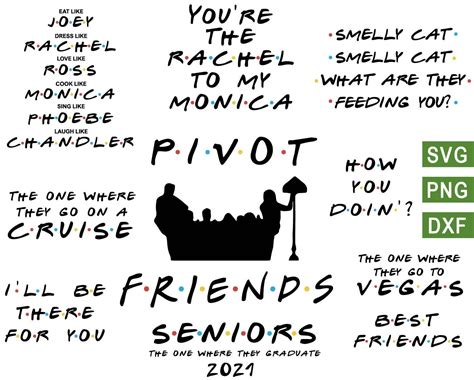 EAT LIKE
J·O·E·Y
DRESS LIKE
R·A·C·H·E·L
LOVE LIKE
R·O·S·S
COOK LIKE
M·O·N·I·C·A
SING LIKE
P·H·O·E·B·E
LAUGH LIKE
C·H·A·N·D·L·E·R
YOU'RE
THE
R·A·C·H·E·L
TO MY
M·O·N·I·C·A
SMELLY CAT
SMELLY CAT
WHAT ARE THEY
FEEDING YOU?
P·I·V·O·T
HOW
YOU
DOIN'?
SVG
PNG
DXF
THE ONE WHERE
THEY GO ON A
C·R·U·I·S·E
THE ONE WHERE
THEY GO TO
V·E·G·A·S
I'LL BE
THERE
FOR YOU
F·R·I·E·N·D·S
BEST
FRIENDS
S·E·N·I·O·R·S
THE ONE WHERE THEY GRADUATE
2021